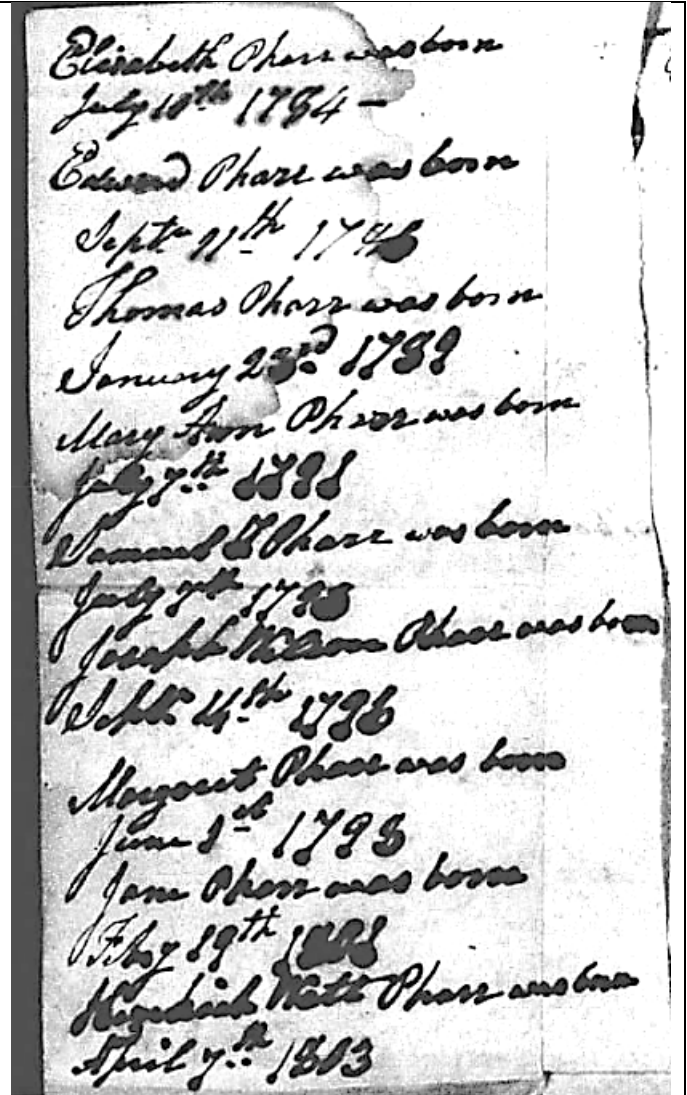 Elizabeth Pharr was born
July 10th 1784 —
Edward Pharr was born
Septr 11th 1786
Thomas Pharr was born
January 23rd 1789
Mary Ann Pharr was born
July 7th 1791
Samuel Pharr was born
July 7th 179
Joseph Wilson Pharr was born
Septr 4th 1796
Margaret Pharr was born
June 1st 1798
Jane Pharr was born
Feby 19th
Hezekiah Pharr was born
April 7th 1803